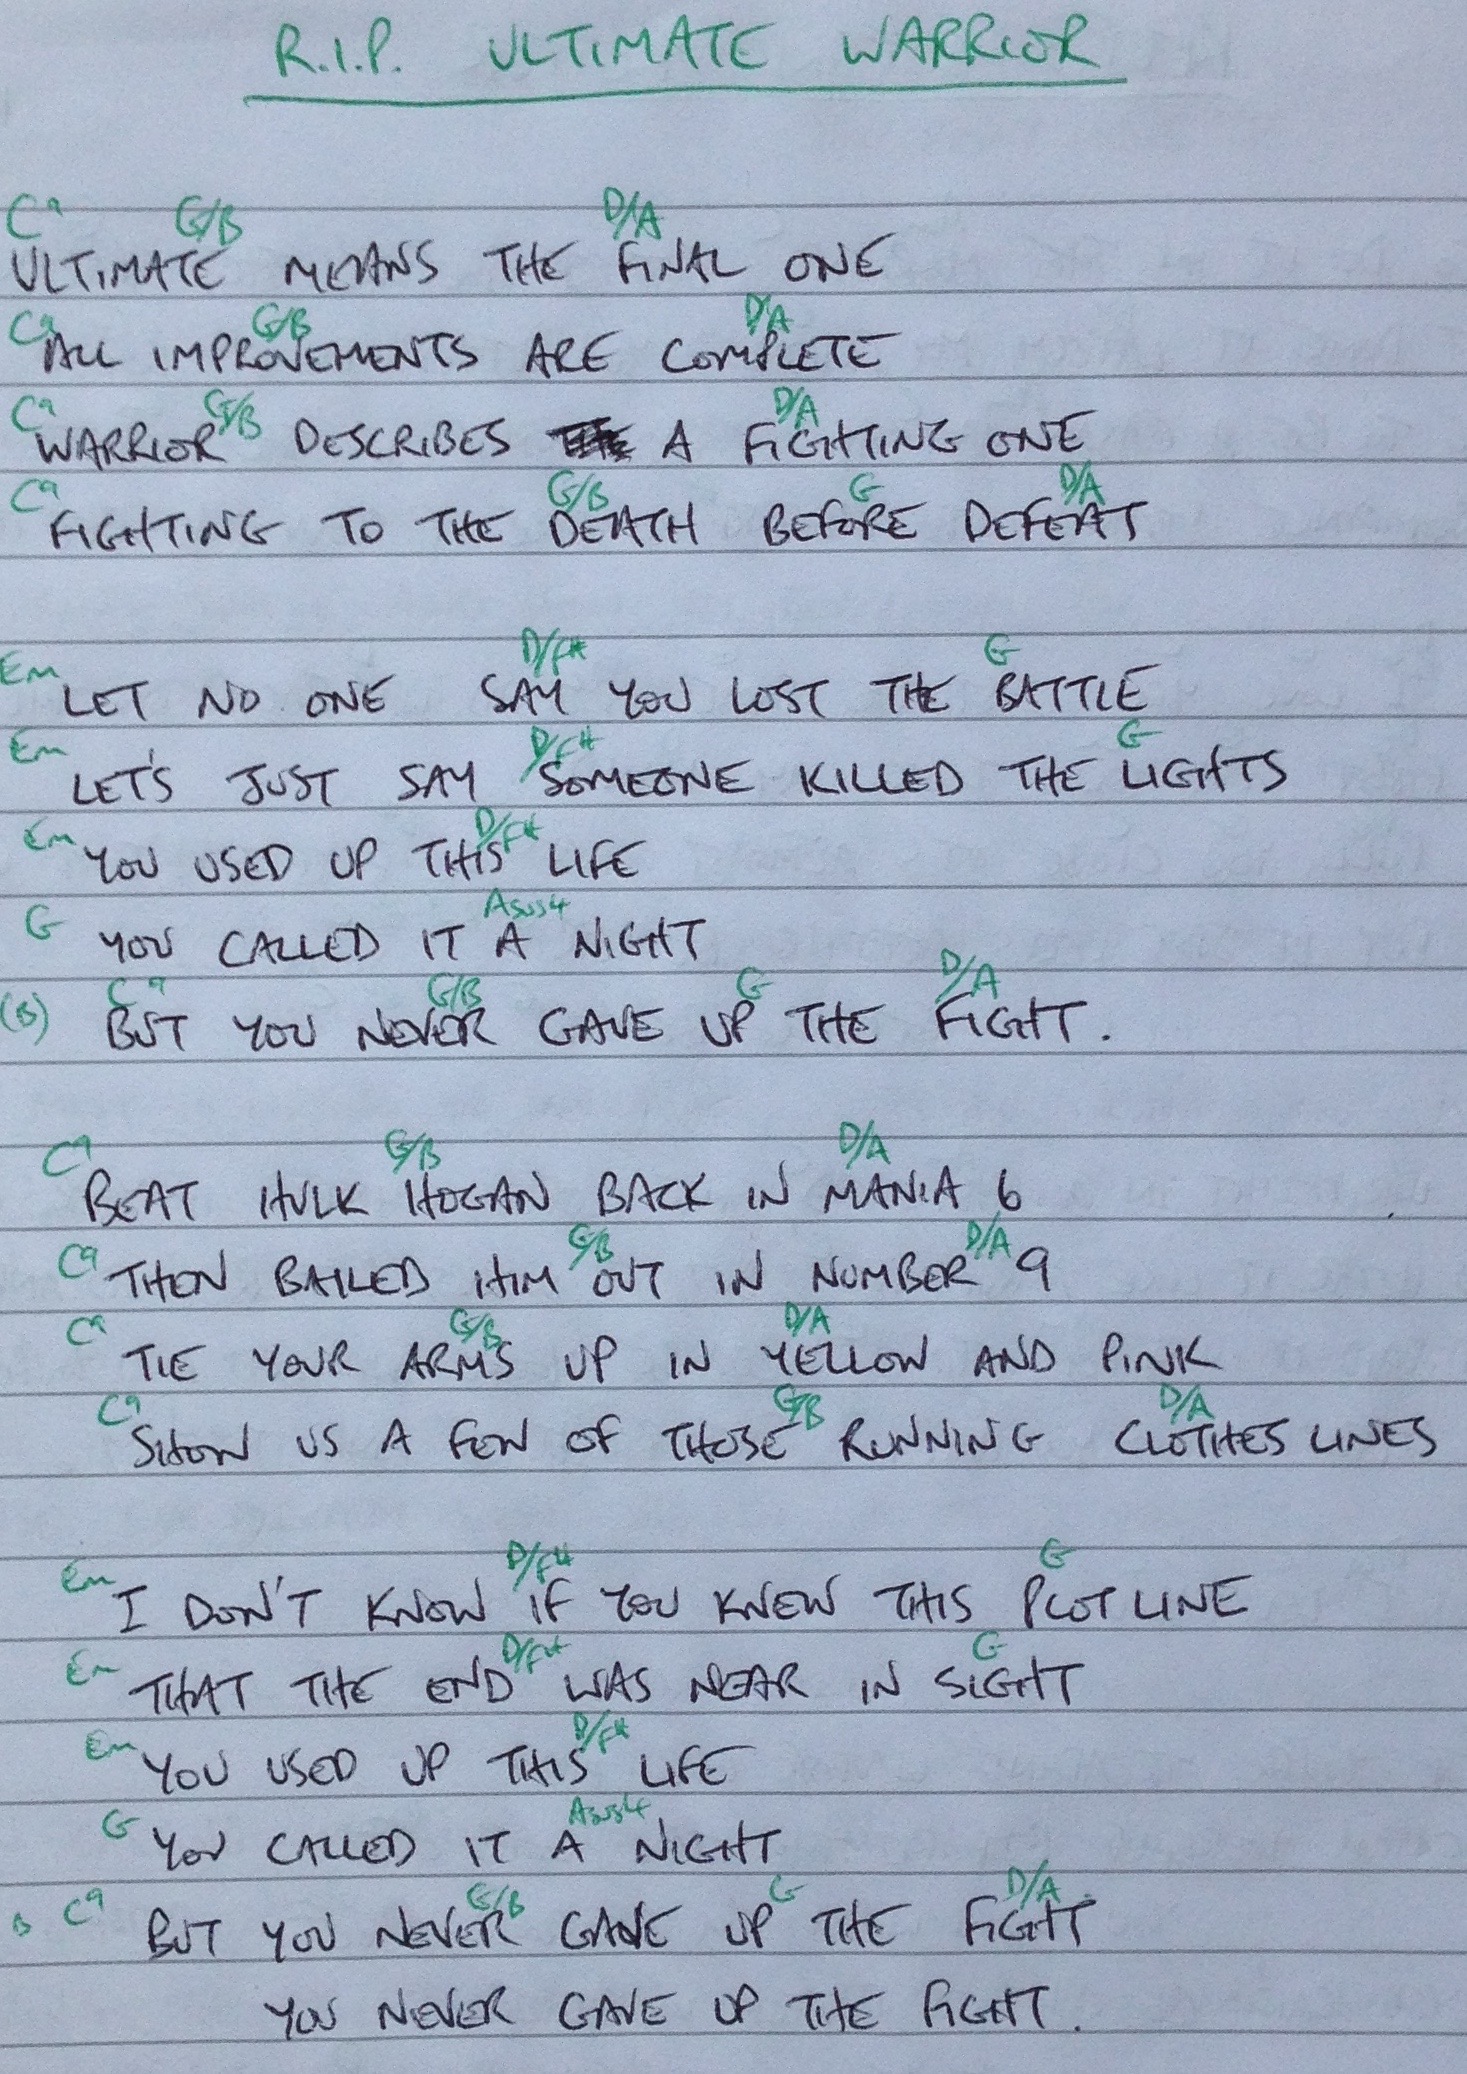 R.I.P. ULTIMATE WARRIOR
C9 G/B D/A
ULTIMATE MEANS THE FINAL ONE
C9 G/B D/A
ALL IMPROVEMENTS ARE COMPLETE
C9 G/B D/A
WARRIOR DESCRIBES A FIGHTING ONE
C9 G/B G D/A
FIGHTING TO THE DEATH BEFORE DEFEAT
Em D/F# G
LET NO ONE SAY YOU LOST THE BATTLE
Em D/F# G
LET'S JUST SAY SOMEONE KILLED THE LIGHTS
Em D/F#
YOU USED UP THIS LIFE
G Asus4
YOU CALLED IT A NIGHT
(B) C9 G/B G D/A
BUT YOU NEVER GAVE UP THE FIGHT.
C9 G/B D/A
BEAT HULK HOGAN BACK IN MANIA 6
C9 G/B D/A
THEN BAILED HIM OUT IN NUMBER 9
C9 G/B D/A
TIE YOUR ARMS UP IN YELLOW AND PINK
C9 G/B D/A
SHOW US A FEW OF THOSE RUNNING CLOTHES LINES
Em D/F# G
I DON'T KNOW IF YOU KNEW THIS PLOT LINE
Em D/F# G
THAT THE END WAS NEAR IN SIGHT
Em D/F#
YOU USED UP THIS LIFE
G Asus4
YOU CALLED IT A NIGHT
B C9 G/B G D/A
BUT YOU NEVER GAVE UP THE FIGHT
YOU NEVER GAVE UP THE FIGHT.